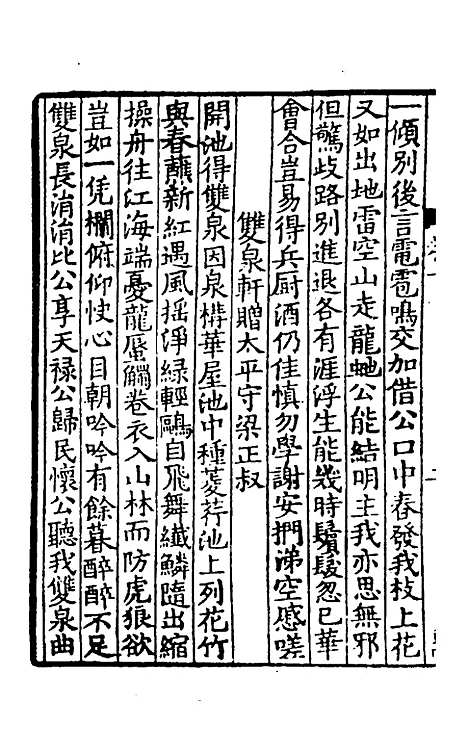 一傾別後言電雹鳴交加借公口中春發我枝上花
又如出地雷空山走龍虵公能結明主我亦思無邪
但驚歧路別進退各有涯浮生能幾時鬚髮忽已華
會合豈易得兵厨酒仍佳慎勿學謝安捫涕空感嗟
雙泉軒贈太平守梁正叔
開池得雙泉因泉構華屋池中種菱荇池上列花竹
與春蘸新紅遇風揺淨緑輕鷗自飛舞纎鱗隨出縮
操舟往江海端憂龍蜃觸卷衣入山林而防虎狼欲
豈如一凭欄俯仰快心目朝吟吟有餘暮醉醉不足
雙泉長涓涓比公享天禄公歸民懷公聽我雙泉曲